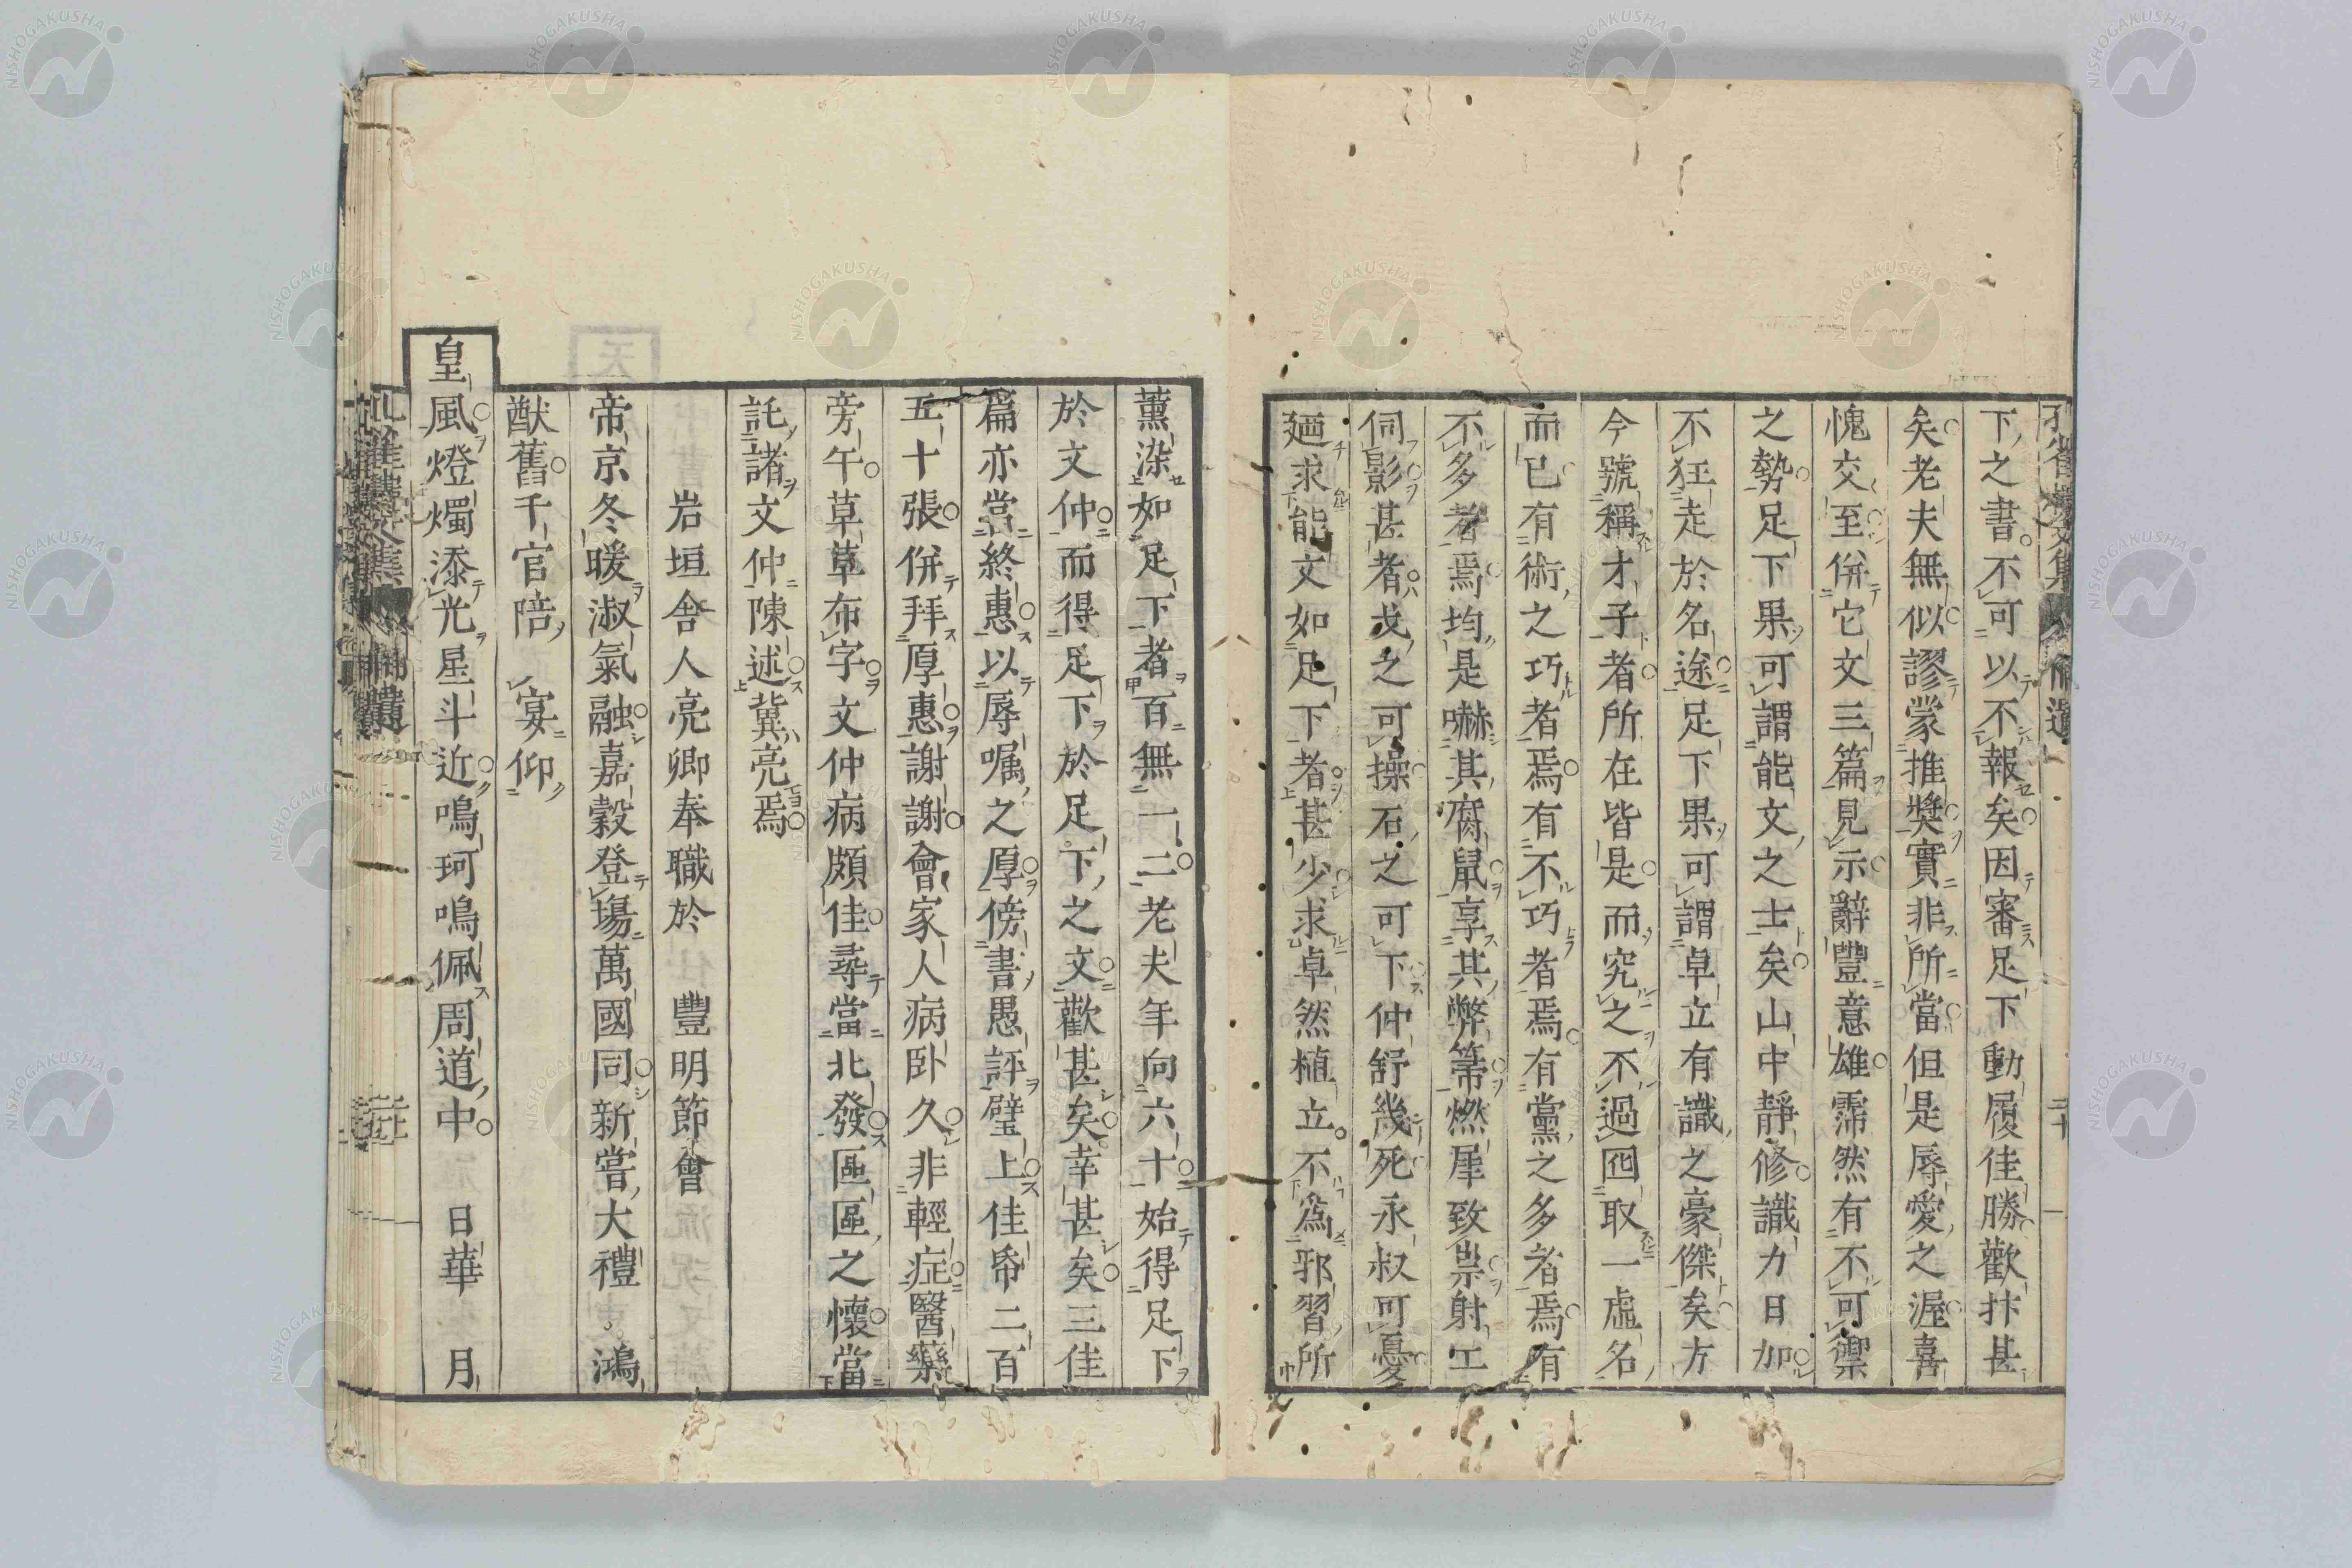 下之書不可以不報矣因審足下動履佳勝歡抃甚
矣老夫無似謬蒙推奬實非所當但是辱愛之渥喜
愧交至併它文三篇見示辭豐意雄霈然有不可禦
之勢足下果可謂能文之士矣山中靜修識力日加
不狂走於名途足下果可謂卓立有識之豪傑矣方
今號稱才子者所在皆是而究之不過囮取一虛名
而已有術之巧者焉有不巧者焉有黨之多者焉有
不多者焉均是嚇其腐鼠享其弊箒燃犀致祟射工
伺影甚者戈之可操石之可下仲舒幾死永叔可憂
廼求能文如足下者甚少求卓然植立不爲邪習所
薰染如足下者百無一二老夫年向六十始得足下
於文仲而得足下於足下之文歡甚矣幸甚矣三佳
篇亦當終惠以辱嘱之厚傍書愚評璧上佳帋二百
五十張併拜厚惠謝謝會家人病卧久非輕症醫藥
旁午草草布字文仲病頗佳尋當北發區區之懷當
託諸文仲陳述冀亮焉
岩垣舍人亮卿奉職於 豐明節會
帝京冬暖淑氣融嘉穀登場萬國同新嘗大禮 鴻
猷舊千官陪 宴仰
皇風燈燭添光星斗近鳴珂鳴佩周道中 日華 月